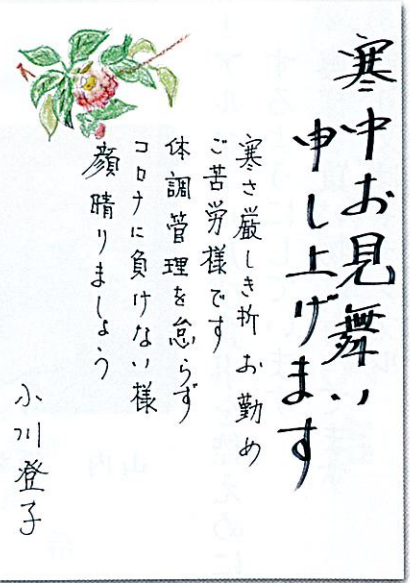 寒中お見舞い
申し上げます
寒さ厳しき折 お勤め
ご苦労様です
体調管理を怠らず
コロナに負けない様
顔晴りましょう
小川登子